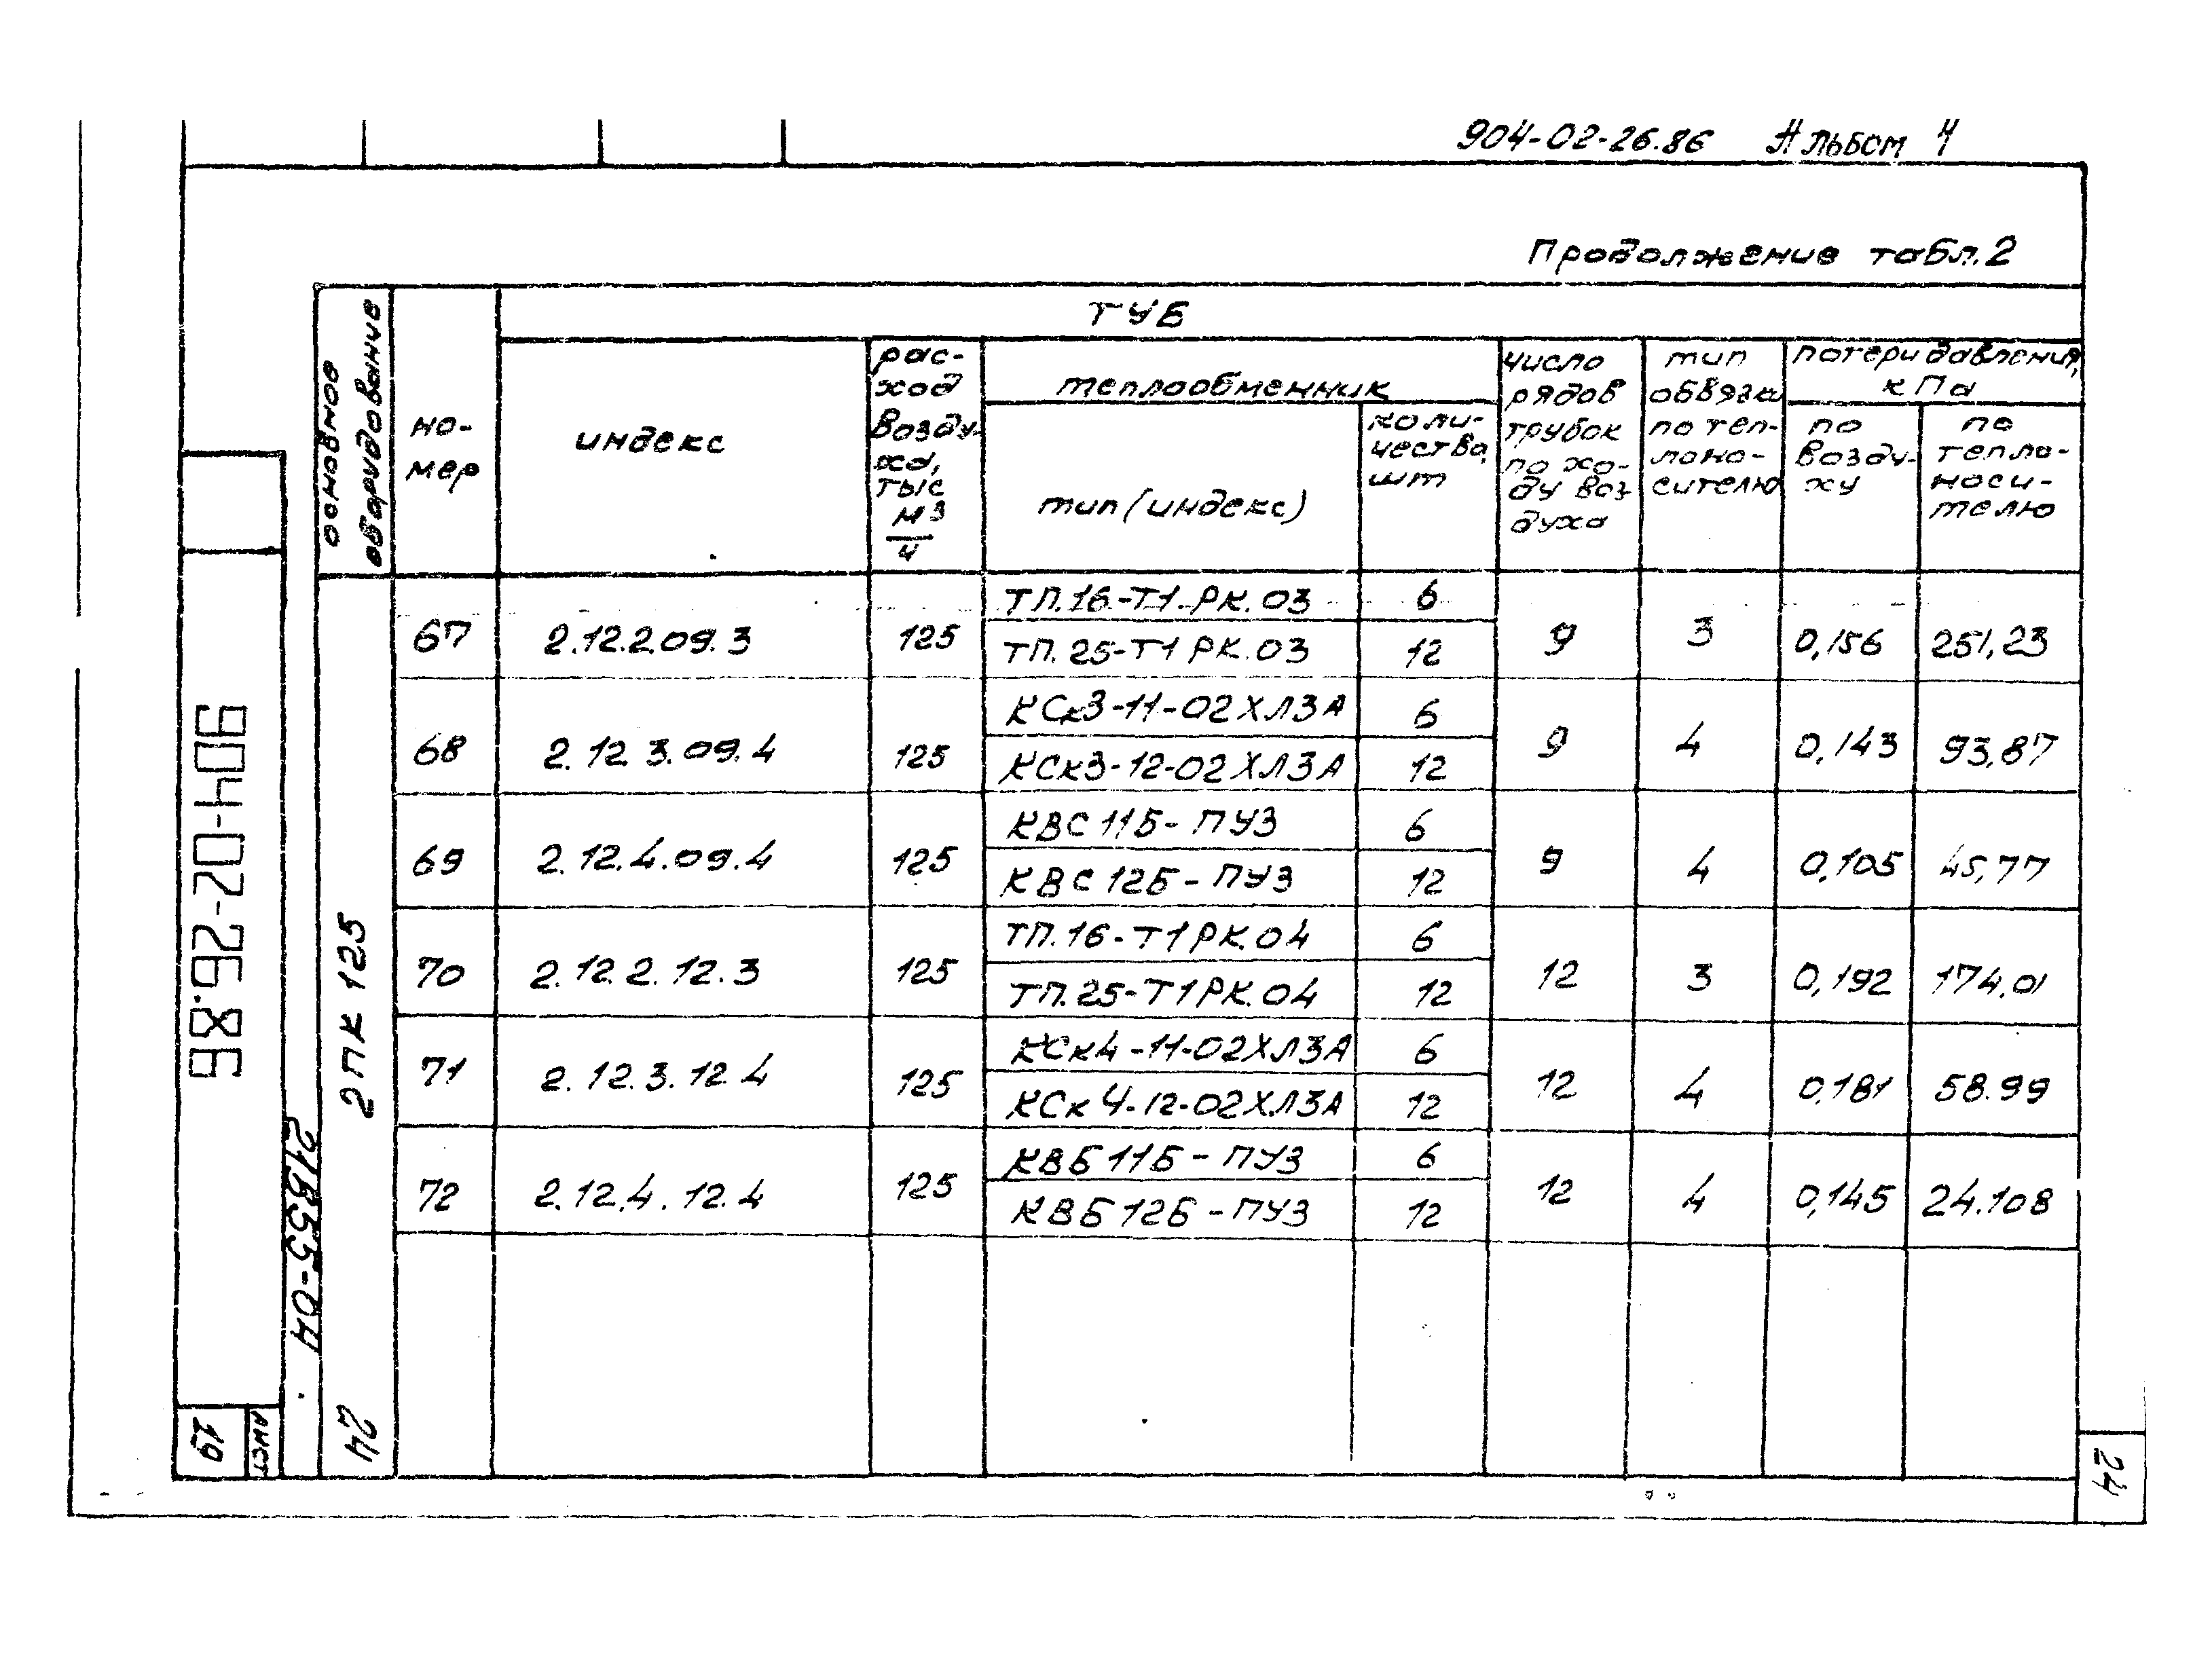 904-02-26.86 Альбом 4
Продолжение табл.2
основное оборудование
но-
мер
ТУБ
индекс
рас-
ход
возду-
ха,
тыс
м3
ч
теплообменник
тип (индекс)
коли-
чество,
шт
число
рядов
трубок
по хо-
ду воз
духа
тип
обвязки
по теп-
лоно-
сителю
потери давления,
кПа
по
возду-
ху
по
тепло-
носи-
телю
2 ПК 125
67 2.12.2.09.3 125 ТП.16-Т1.РК.03 6 9 3 0,156 251,23
ТП.25-Т1 РК.03 12
68 2.12 3.09.4 125 КСк3-11-02ХЛ3А 6 9 4 0,143 93,87
КСк3-12-02ХЛ3А 12
69 2.12.4.09.4 125 КВС 11Б-ПУ3 6 9 4 0,105 45,77
КВС 12Б-ПУ3 12
70 2.12.2.12.3 125 ТП.16-Т1РК.04 6 12 3 0,192 174,01
ТП.25-Т1РК.04 12
71 2.12.3.12 4 125 КСк4-11-02ХЛ3А 6 12 4 0,181 58.99
КСк 4-12-02ХЛ3А 12
72 2.12.4.12.4 125 КВБ 11Б-ПУ3 6 12 4 0,145 24.108
КВБ 12Б-ПУ3 12
904-02-26.86
21855-04
24
19
лист
24